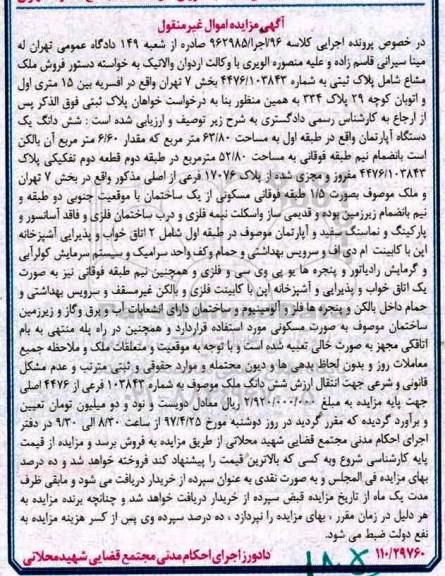 آگهی مزایده اموال غیر منقول
در خصوص پرونده اجرایی کلاسه ۹۶/اجرا/۹۶۲۹۸۵ صادره از شعبه ۱۴۹ دادگاه عمومی تهران له
مینا سیرانی قاسم زاده و علیه منصوره الویری با وکالت اردوان والاتیک به خواسته دستور فروش ملک
مشاع شامل پلاک ثبتی به شماره ۴۴۷۶/۱۰۳۸۴۳ بخش ۷ تهران واقع در افسریه بین ۱۵ متری اول
و اتوبان کوچه ۲۹ پلاک ۳۳۴ به همین منظور بنا به درخواست خواهان پلاک ثبتی فوق الذکر پس
از ارجاع به کارشناس رسمی دادگستری به شرح زیر توصیف و ارزیابی شده است : شش دانگ یک
دستگاه آپارتمان واقع در طبقه اول به مساحت ۶۳/۸۰ متر مربع که مقدار ۶/۶۰ متر مربع آن بالکن
است بانضمام نیم طبقه فوقانی به مساحت ۵۲/۸۰ مترمربع در طبقه دوم قطعه دوم تفکیکی پلاک
۴۴۷۶/۱۰۳۸۴۳ مفروز و مجزی شده از پلاک ۱۷۰۷۶ فرعی از اصلی مذکور واقع در بخش ۷ تهران
و ملک موصوف بصورت ۱/۵ طبقه فوقانی مسکونی از یک ساختمان با موقعیت جنوبی دو طبقه و
نیم بانضمام زیرزمین بوده و قدیمی ساز واسکلت نیمه فلزی و درب ساختمان فلزی و فاقد آسانسور و
پارکینگ و نماسنگ سفید و آپارتمان موصوف در طبقه اول شامل ۲ اتاق خواب و پذیرایی آشپزخانه
اپن با کابینت ام دی اف و سرویس بهداشتی و حمام وکف واحد سرامیک و سیستم سرمایش کولرآبی
و گرمایش رادیاتور و پنجره ها یو پی وی سی و فلزی و همچنین نیم طبقه فوقانی نیز به صورت
یک اتاق خواب و پذیرایی و آشپزخانه اپن با کابینت فلزی و بالکن غیرمسقف و سرویس بهداشتی و
حمام داخل بالکن و پنجره ها فلز و آلومینیوم و ساختمان دارای انشعابات آب و برق وگاز و زیرزمین
ساختمان موصوف به صورت مسکونی مورد استفاده قراردارد و همچنین در راه پله منتهی به بام
اتاقکی مجهز به صورت خالی تعبیه شده است و با توجه به موقعیت و متعلقات ملک و ملاحظه جمیع
معاملات روز و بدون لحاظ بدهی ها و دیون محتمله و موارد حقوقی و ثبتی مترتب و عدم مشکل
قانونی و شرعی جهت انتقال ارزش شش دانگ ملک موصوف به شماره ۱۰۳۸۴۳ فرعی از ۴۴۷۶ اصلی
جهت پایه مزایده به مبلغ ۲/۹۲۰/۰۰۰/۰۰۰ ریال معادل دویست و نود و دو میلیون تومان تعیین
و برآورد گردیده که مقرر گردید در روز دوشنبه مورخ ۹۷/۴/۲۵ از ساعت ۸/۳۰ الی ۹/۳۰ در دفتر
اجرای احکام مدنی مجتمع قضایی شهید محلاتی از طریق مزایده به فروش برسد و مزایده از قیمت
پایه کارشناسی شروع وبه کسی که بالاترین قیمت را پیشنهاد کند فروخته خواهد شد و ده درصد
بهای مزایده فی المجلس و به صورت نقدی به عنوان سپرده از خریدار دریافت می شود و مابقی ظرف
مدت یک ماه از تاریخ مزایده قبض سپرده از خریدار دریافت خواهد شد و چنانچه برنده مزایده به
هر دلیل در زمان مقرر ، بهای مزایده را نپردازد ، ده درصد سپرده وی پس از کسر هزینه مزایده به
نفع دولت ضبط می شود.
۱۱۰/۲۹۷۶۰ دادورز اجرای احکام مدنی مجتمع قضایی شهید محلاتی